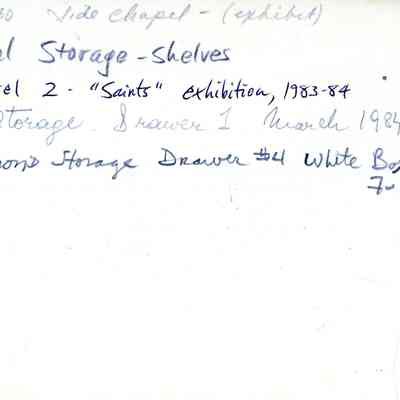 Side Chapel - (exhibit)
Storage - Shelves
2 - "Saints" exhibition, 1983-84
Storage. Drawer 1 March 1984
Storage Drawer #4 White Box
7-